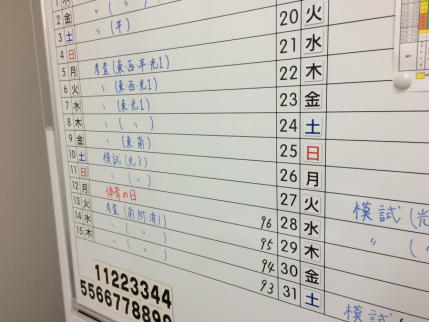 1 木
2 金 〃 (
3 土 〃 (平)
4 日
5 月 考査 (東・西・平・光1)
6 火 〃 (東・西・光1)
7 水 〃 (東・光1)
8 木 〃 ( 〃 )
9 金 〃 (東・南)
10 土 模試 (光3)
11 日 〃 ( 〃 )
12 月 体育の日
13 火 考査 (南・
14 水 〃 ( 〃 )
15 木 〃 ( 〃 )
20 火
21 水
22 木
23 金
24 土
25 日
26 月
27 火 模試 (光
96 28 水 〃 (
95 29 木
94 30 金
93 31 土 模試
11223344
5566778899